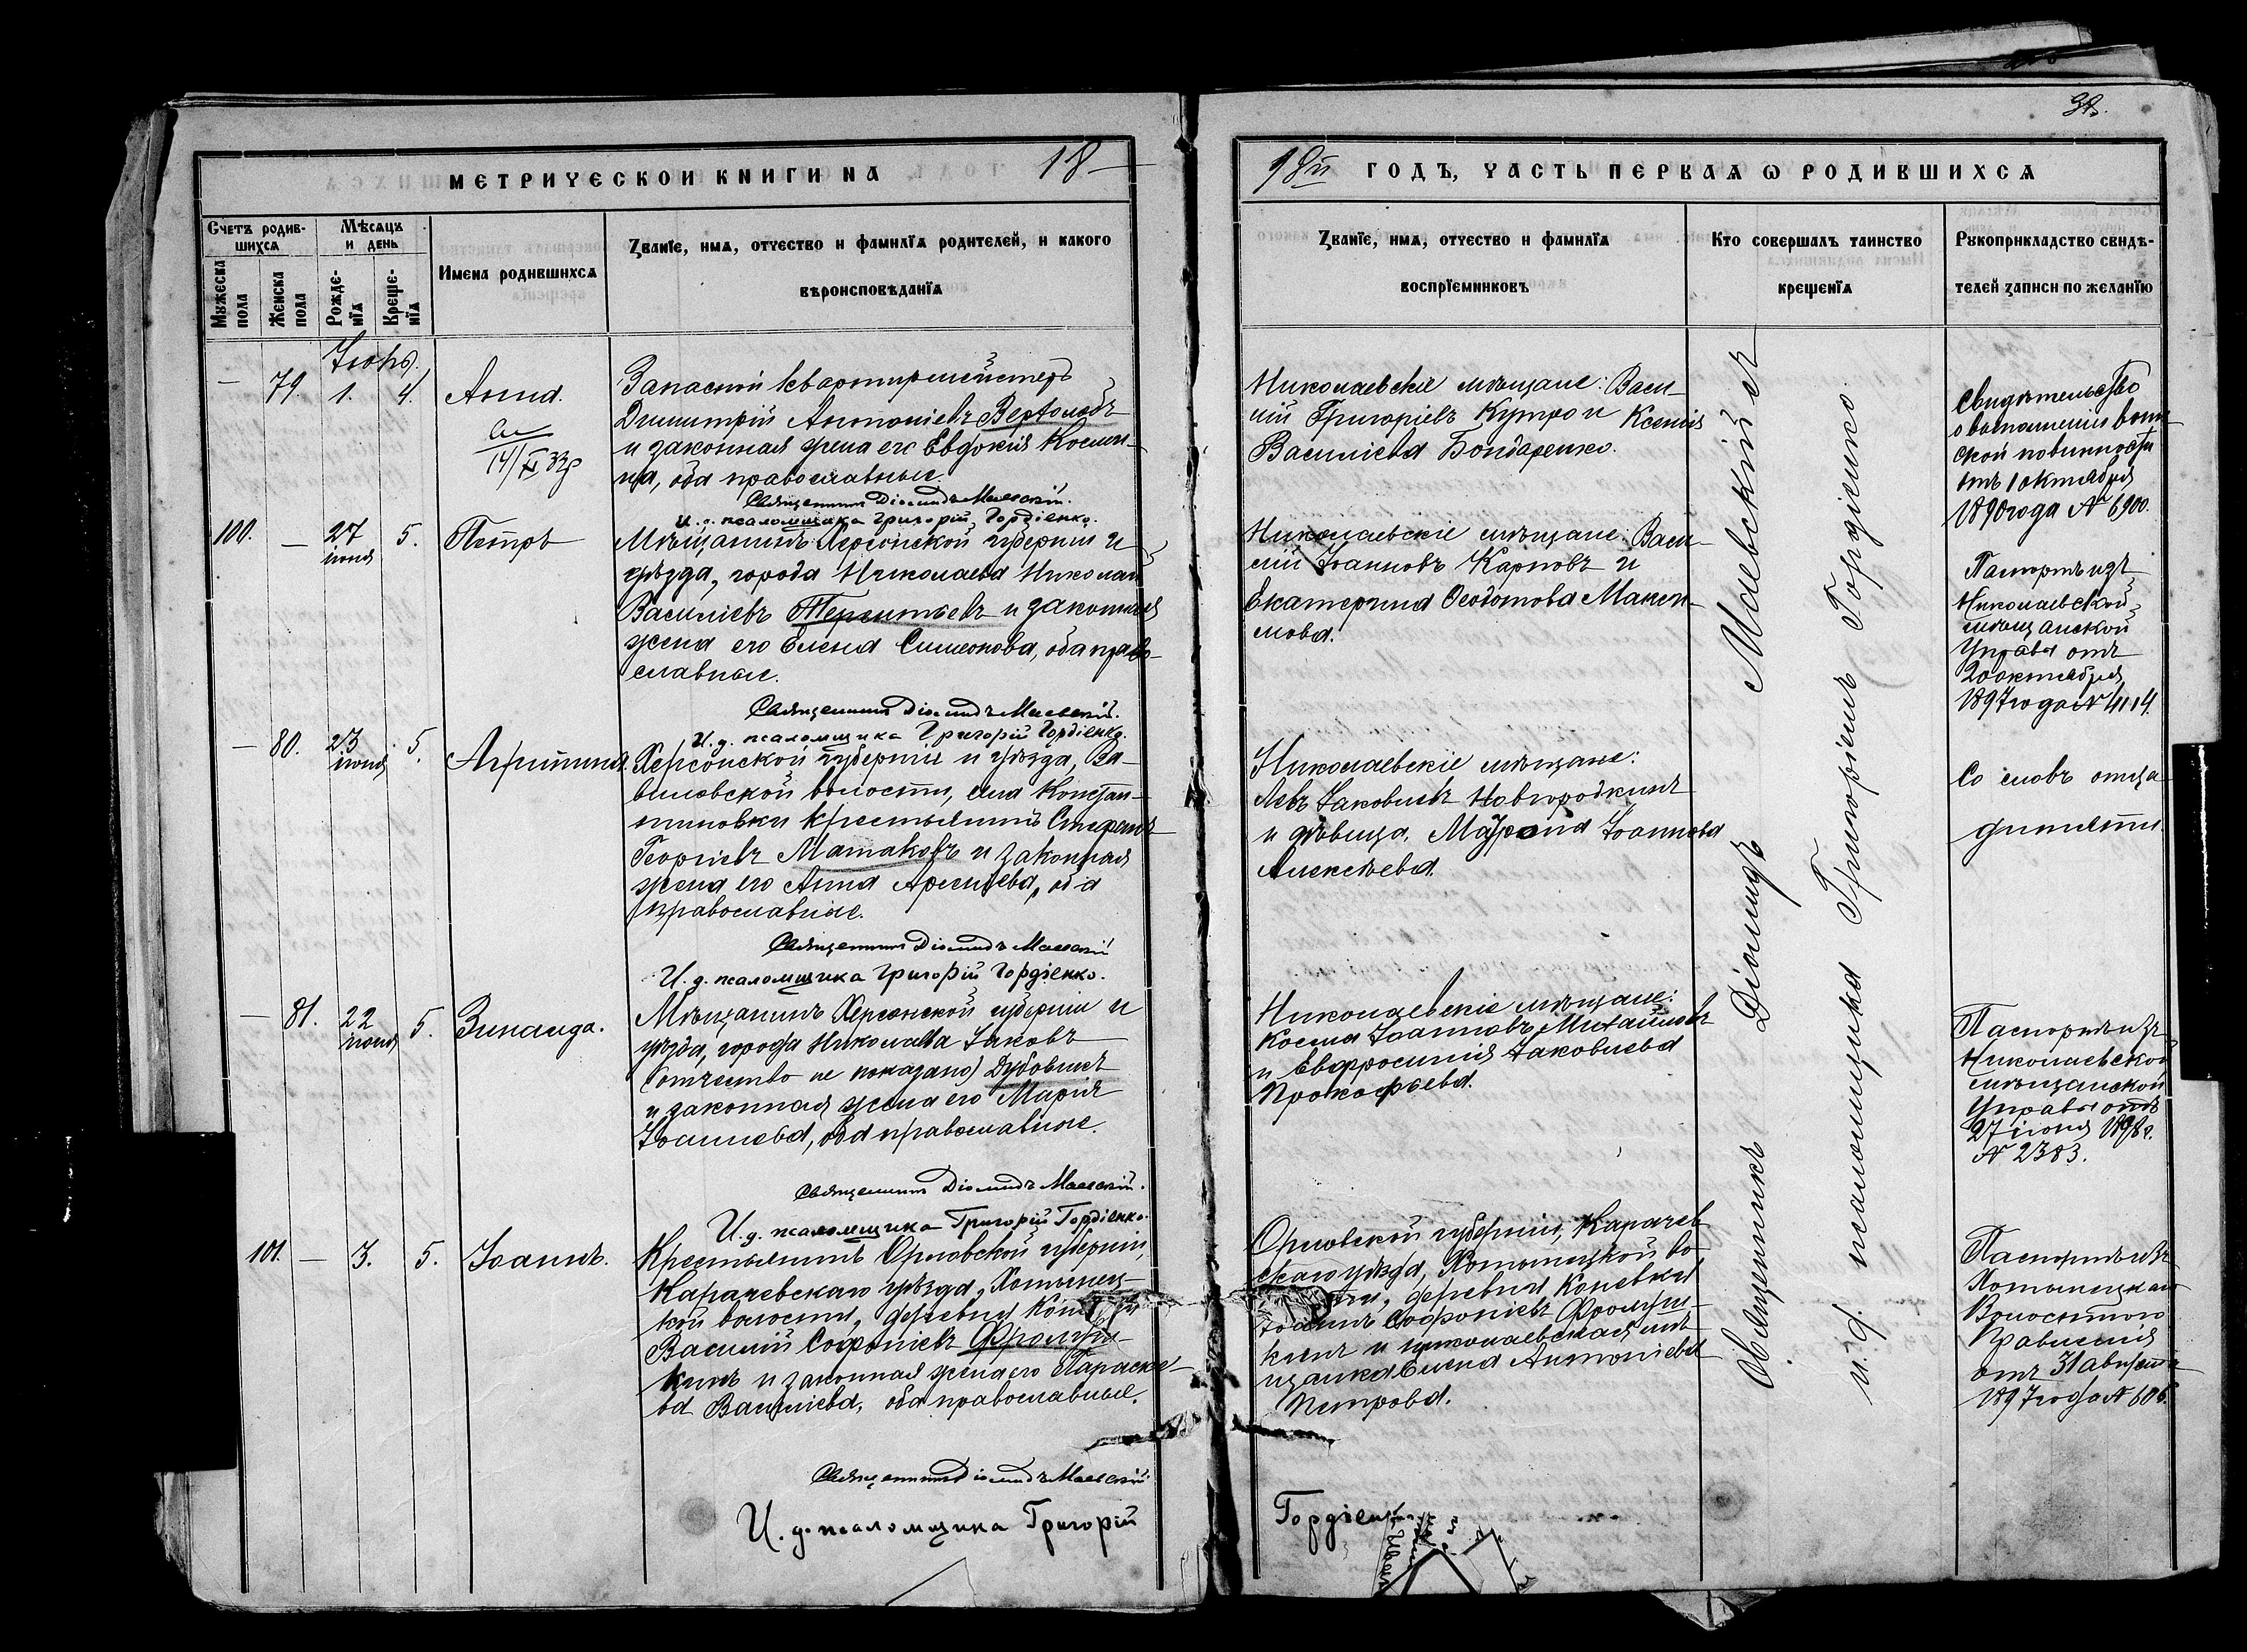 38.
МЕТРИЧЕСКОЙ КНИГИ НА 18
98й ГОДЪ, ЧАСТЬ ПЕРВАЯ Ѡ РОДИВШИХСЯ
Счетъ родив-
шихся
Мужеска
пола
Женска
пола
Мѣсяцъ
и день
Рожде-
нія
Креще-
нія
Имена родившихся
Званіе, имя, отчество и фамилія родителей, и какого
вѣроисповѣданія
Званіе, имя, отчество и фамилія
воспріемниковъ
Кто совершалъ таинство
крещенія
Рукоприкладство свидѣ-
телей записи по желанію
Іюль.
— 79. 1. 4. Анна.
14/XI 33г
Запасной квартирмейстеръ
Димитрій Антоніевъ
и законная жена его Евдокія Косми-
на, оба православные.
Священникъ Діомидъ Маевскій.
И. д. псаломщика Григорій Гордіенко.
Николаевскіе мѣщане: Васи-
лій Григоріевъ и Ксенія
Василіева Бондаренко.
Свидѣтельство
о выполненіи воин-
ской повинности
отъ 1 октября
1890 года № 6900.
100. — 27 іюня 5. Петръ
Мѣщанинъ Херсонской губерніи и
уѣзда, города Николаева Николай
Василіевъ Терентьевъ и законная
жена его Елена Симеонова, оба право-
славные.
Священникъ Діомидъ Маевскій.
И. д. псаломщика Григорій Гордіенко.
Николаевскіе мѣщане: Васи-
лій Іоанновъ Карповъ и
Екатерина Ѳеодотова Макси-
мова.
Паспортъ изъ
Николаевской
мѣщанской
Управы отъ
20 октября
1897 года № 4114.
— 80. 23 іюня 5. Агриппина.
Херсонской губерніи и уѣзда, Ва-
виловской волости, села Констан-
тиновки крестьянинъ Стефанъ
Георгіевъ Матаковъ и законная
жена его Анна Арсеніева, оба
православные.
Священникъ Діомидъ Маевскій
И. д. псаломщика Григорій Гордіенко.
Николаевскіе мѣщане:
Левъ Іаковлевъ Новгородкинъ
и дѣвица, Матрона Іоаннова
Алексѣева.
Со словъ отца
дитяти.
— 81. 22 іюня 5. Зинаида.
Мѣщанинъ Херсонской губерніи и
уѣзда, города Николаева Іаковъ
(отчество не показано) Дубовикъ
и законная жена его Марія
Іоаннова, оба православные.
Священникъ Діомидъ Маевскій.
И. д. псаломщика Григорій Гордіенко.
Николаевскіе мѣщане:
Косма Іоанновъ Михайловъ
и Евфросинія Іаковлева
Прокофьева.
Паспортъ изъ
Николаевской
мѣщанской
Управы отъ
27 іюня 1898 г.
№ 2383.
101. — 3. 5. Іоаннъ.
Крестьянинъ Орловской губерніи,
Карачевскаго уѣзда, Хотынец-
кой волости, деревни
Василій Софоніевъ Фролуш-
кинъ и законная жена его Параске-
ва Василіева, оба православные.
Священникъ Діомидъ Маевскій
И. д. псаломщика Григорій
Гордіенко
Орловской губерніи, Карачев-
скаго уѣзда, Хотынецкой во-
лости, деревни Коневки
Іоаннъ Софоніевъ Фролуш-
кинъ и николаевская мѣ-
щанка Елена Антоніева
Петрова.
Паспортъ изъ
Хотынецкаго
Волостного
Правленія
отъ 31 августа
1897 года № 606.
Священникъ Діомидъ Маевскій и
и. д. псаломщика Григорій Гордіенко.